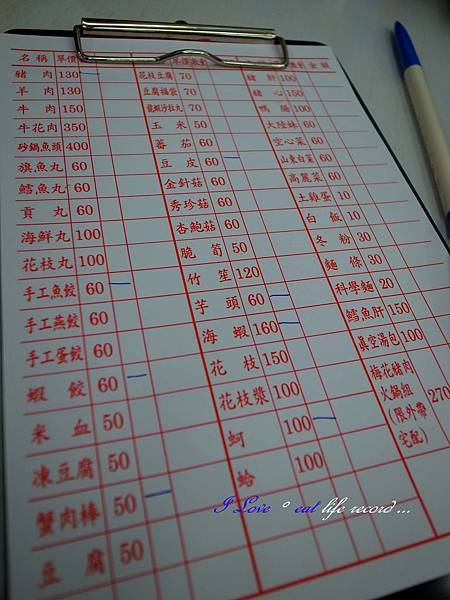 名稱 單價
豬肉 130
羊肉 130
牛肉 150
牛花肉 350
砂鍋魚頭 400
旗魚丸 60
鱈魚丸 60
貢丸 60
海鮮丸 100
花枝丸 100
手工魚餃 60
手工燕餃 60
手工蛋餃 60
蝦餃 60
米血 50
凍豆腐 50
蟹肉棒 50
豆腐 50
單價
花枝豆腐 70
豆腐福袋 70
龍蝦沙拉丸 70
玉米 50
蕃茄 60
豆皮 60
金針菇 60
秀珍菇 60
杏鮑菇 60
脆筍 50
竹笙 120
芋頭 60
海蝦 160
花枝 150
花枝漿 100
蚵 100
蛤 100
數 金額
豬肝 100
豬心 150
鴨腸 100
大陸妹 60
空心菜 60
山東白菜 60
高麗菜 60
土雞蛋 10
白飯 10
冬粉 30
麵條 30
科學麵 20
鱈魚肝 150
真空湯包 100
梅花豬肉
火鍋組
(限外帶
宅配) 270
I Love ° eat life record ...